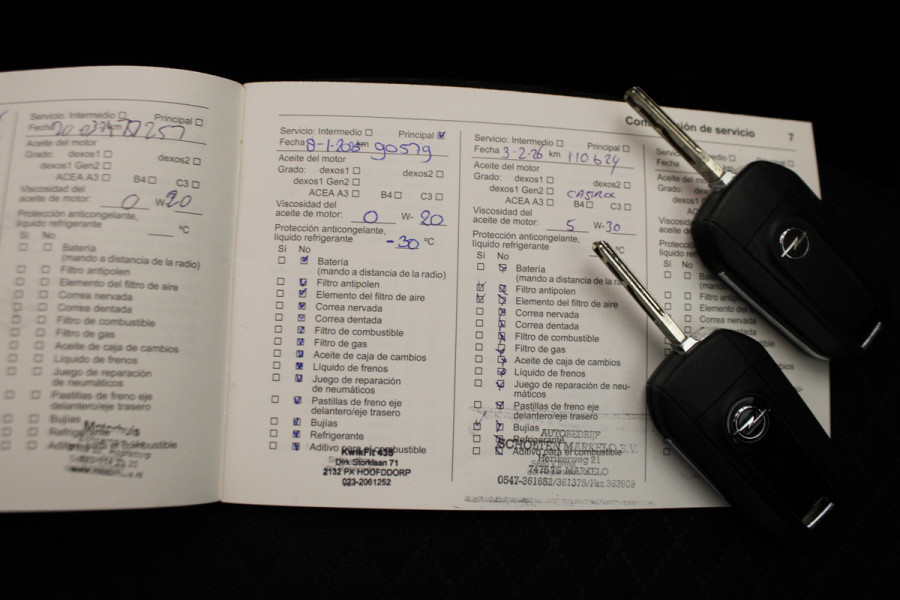 Servicio: Intermedio Principal
Fecha km 77257
Aceite del motor
Grado: dexos1 dexos2
dexos1 Gen2
ACEA A3 B4 C3
Viscosidad del
aceite de motor: 0 W-20
Protección anticongelante,
líquido refrigerante °C
Sí No
Batería
(mando a distancia de la radio)
Filtro antipolen
Elemento del filtro de aire
Correa nervada
Correa dentada
Filtro de combustible
Filtro de gas
Aceite de caja de cambios
Líquido de frenos
Juego de reparación
de neumáticos
Pastillas de freno eje
delantero/eje trasero
Bujías
Refrigerante
Aditivo para el combustible
Motorhuis
Servicio: Intermedio Principal
Fecha 8-1-2025 km 90579
Aceite del motor
Grado: dexos1 dexos2
dexos1 Gen2
ACEA A3 B4 C3
Viscosidad del
aceite de motor: 0 W-20
Protección anticongelante,
líquido refrigerante -30 °C
Sí No
Batería
(mando a distancia de la radio)
Filtro antipolen
Elemento del filtro de aire
Correa nervada
Correa dentada
Filtro de combustible
Filtro de gas
Aceite de caja de cambios
Líquido de frenos
Juego de reparación
de neumáticos
Pastillas de freno eje
delantero/eje trasero
Bujías
Refrigerante
Aditivo para el combustible
KwikFit 435
Dirk Storklaan 71
2132 PX HOOFDDORP
023-2061252
de servicio 7
Servicio: Intermedio Principal
Fecha 3-2-26 km 110624
Aceite del motor
Grado: dexos1 dexos2
dexos1 Gen2
ACEA A3 B4 C3
Viscosidad del
aceite de motor: 5 W-30
Protección anticongelante,
líquido refrigerante °C
Sí No
Batería
(mando a distancia de la
Filtro antipolen
Elemento del filtro de aire
Correa nervada
Correa dentada
Filtro de combustible
Filtro de gas
Aceite de caja de cambios
Líquido de frenos
Juego de reparación de neu-
máticos
Pastillas de freno eje
delantero/eje trasero
Bujías
Refrigerante
Aditivo para el combustible
AUTOBEDRIJF
SCHOLTEN MARKELO B.V.
Herikerweg 21
7475 TS MARKELO
0547-361652/361375/Fax 363609